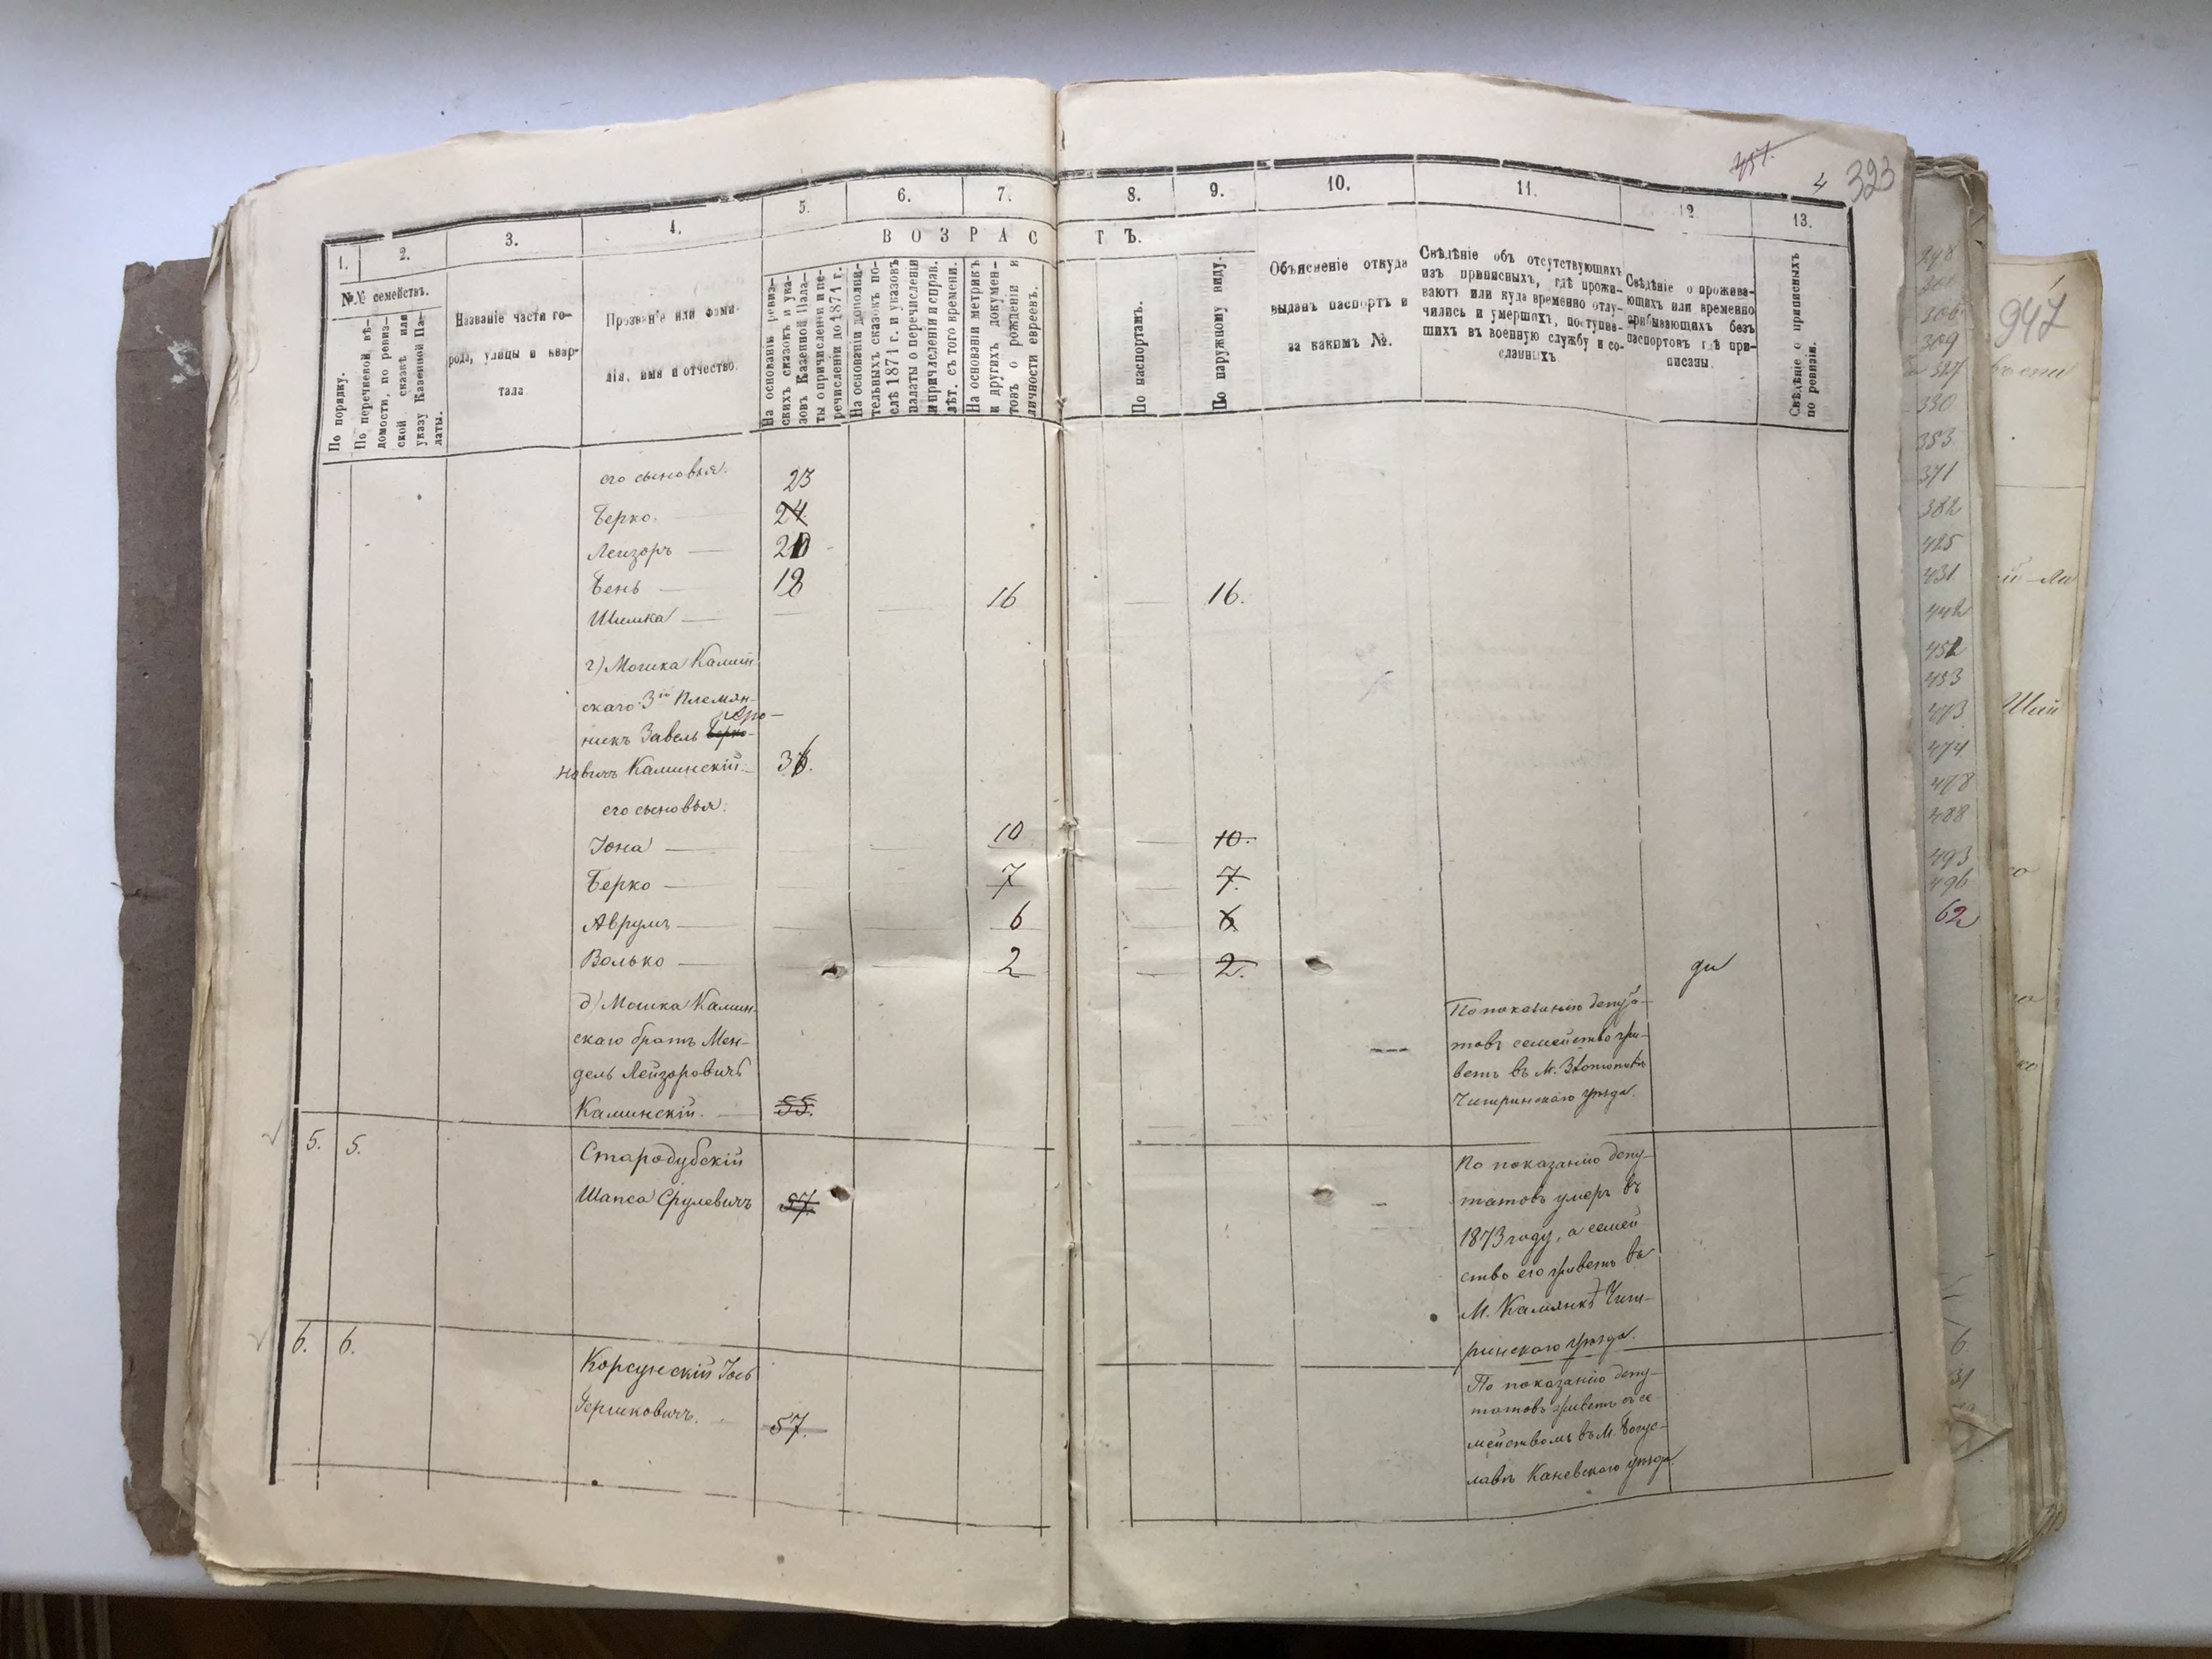 457.
4
323
1.
2.
3.
4.
5.
6.
7.
8.
9.
10.
11.
12
13.
ВОЗРАСТЪ.
№№ семействъ.
По порядку.
По перечневой вѣ-
домости, по ревиз-
ской сказкѣ или
указу Казенной Па-
латы.
Названіе части го-
рода, улицы и квар-
тала
Прозваніе или фами-
лія, имя и отчество.
На основаніи ревиз-
скихъ сказокъ и ука-
зовъ Казенной Пала-
ты о причисленіи и пе-
речисленіи до 1871 г.
На основаніи дополни-
тельныхъ сказокъ по-
слѣ 1871 г. и указовъ
палаты о перечисленіи
и причисленіи и справ.
лѣт. съ того времени.
На основаніи метрикъ
и другихъ докумен-
товъ о рожденіи и
личности евреевъ.
По паспортамъ.
По наружному виду.
Объясненіе откуда
выданъ паспортъ и
за какимъ №.
Свѣдѣніе объ отсутствующихъ
изъ приписныхъ, гдѣ прожи-
ваютъ или куда временно отлу-
чились и умершихъ, поступив-
шихъ въ военную службу и со-
сланныхъ
Свѣдѣніе о прожива-
ющихъ или временно
прибывающихъ безъ
паспортовъ гдѣ при-
писаны.
Свѣдѣніе о приписныхъ
по ревизіи.
его сыновья: 23
Берко. 24
Лейзоръ 20
Бень 18
Шимка 16 16.
г) Мошка Камин
скаго 3й племян-
Аро-
никъ Завель Берко-
новичъ Каминскій. 36.
его сыновья:
Іона 10 10.
Берко 7 7.
Аврумъ 6 6
Волько 2 2.
д) Мошка Камин-
скаго братъ Мен-
дель Лейзоровичъ
Каминскій. 55.
По показанію депута-
товъ семейство жи-
ветъ въ М.
Чигиринскаго уѣзда.
5. 5.
Стародубскій
Шапса Срулевичъ 57.
По показанію депу-
татовъ умеръ въ
1873 году, а семей
ство его живетъ въ
М. Камянкѣ Чиги-
ринскаго уѣзда.
6. 6.
Корсунскій Іось
Гершковичъ. 57.
По показанію депу-
татовъ живетъ съ се-
мействомъ въ М. Богус-
лавѣ Каневскаго уѣзда.
947
330
353
371
382
425
431
442
452
453
474
478
488
493
496
62
6
31